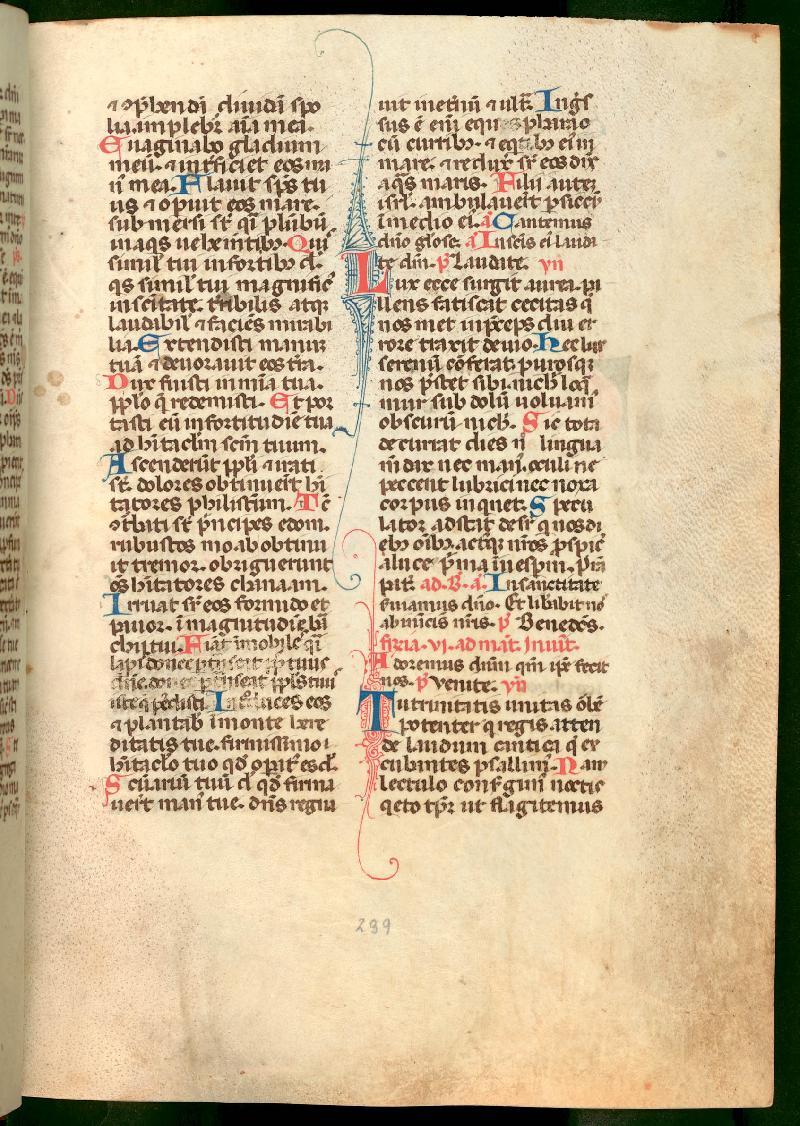 ⁊ ꝯp̃hendã diuidã spo
lia. implebit̃ aĩa mea.
Euaginabo gladium
meũ. ⁊ int̃ficiet eos ma
n᷑ mea. Flauit sp̃s tu
us ⁊ opuit eos mare.
submersi st̃ q̃i plũbũ
in aq̃s uehem̃tibꝫ. Qui
simil̃ tui in fortibꝫ d.
q̃s simil̃ tui magnific᷑
in sc̃itate. t̃ribilis atqꝫ
laudabil̃ ⁊ faciẽs mirabi
lia. Extendisti manum
tuã ⁊ deuorauit eos tr̃a.
Dux fuisti in mĩa tua.
pplo q̃ redemisti. Et por
tasti eũ in fortitudĩe tua
ad hĩtaclm̃ scm̃ tuum.
Ascenderũt ppl̃i ⁊ irati
st̃. dolores obtinuer̃t hĩ
tatores philistiim. Tc̃
ꝯt᷑bati st̃ p̃ncipes edom.
robustos moab obtinu
it tremor. obriguerunt
oẽs hĩtatores chanaam.
Irruat sr̃ eos formido et
pauor. ĩ magnitudĩe br̃a
chij tui. Fiãt ĩmobiles q̃i
lapis donec p̃transeat ppl̃s tuus
dñe. donec p̃transeat ppl̃s tuus
iste q̃ possedisti. Introduces eos
⁊ plantab᷑ ĩ monte here
ditatis tue. firmissimo
hĩtac̃lo tuo qd̃ opat᷑ es d.
Sc̃uariũ tuũ d. qd̃ firma
uer̃t man᷑ tue. dñs regna
uit ĩ et̃nũ ⁊ ult᷑. Ing̃s
sus ẽ eñi eques pharao
cũ curribꝫ. ⁊ eq̃tibꝫ ei᷑ in
mare. ⁊ redux᷑ sr̃ eos dñs
aq̃s maris. Filii autem
isrl̃. ambulauer̃t p siccũ
ĩ medio ei᷑. a᷑ Cantemus
dño glose. a᷑ In sc̃is ei᷑ lauda
te dm̃. p᷑ Laudate. yñ
Lux ecce surgit aurea. pa
llens fatiscat cecitas q̃
nos met in p̃ceps diu er
rore traxit deuio. Hec lux
serenũ cõferat. purosqꝫ
nos p̃stet sibi. nich᷑ loq̃
mur subdolũ uoluam᷑
obscurũ nich᷑. Sic tota
decurrat dies n᷑ lingua
m̃dax nec man᷑. oculi ne
peccent lubrici nec noxa
corpus inquinet. Specu
lator adstat desr̃ q̃ nos di
ebꝫ oĩbꝫ. actusqꝫ nr̃os p̃spic᷑
a luce p̃ma in uesp̃um. P̃ra
p̃ta. ad. B. a᷑. In sanctitate
seruiamus dño. Et libabit nõ
ab inimicis nr̃is. p᷑ Benedcs̃.
feria. vi. ad mat᷑. Inuit.
Adoremus dñum qm̃ ip̃e fecit
nos. p᷑ venite. yñ
Tu trinitatis unitas orbẽ
potenter q̃ regis atten
de laudum cantica q̃ ex
cubantes psallim᷑. Nam
lectulo consurgim᷑ noctis
qeto tp̃r ut flagitemus
239